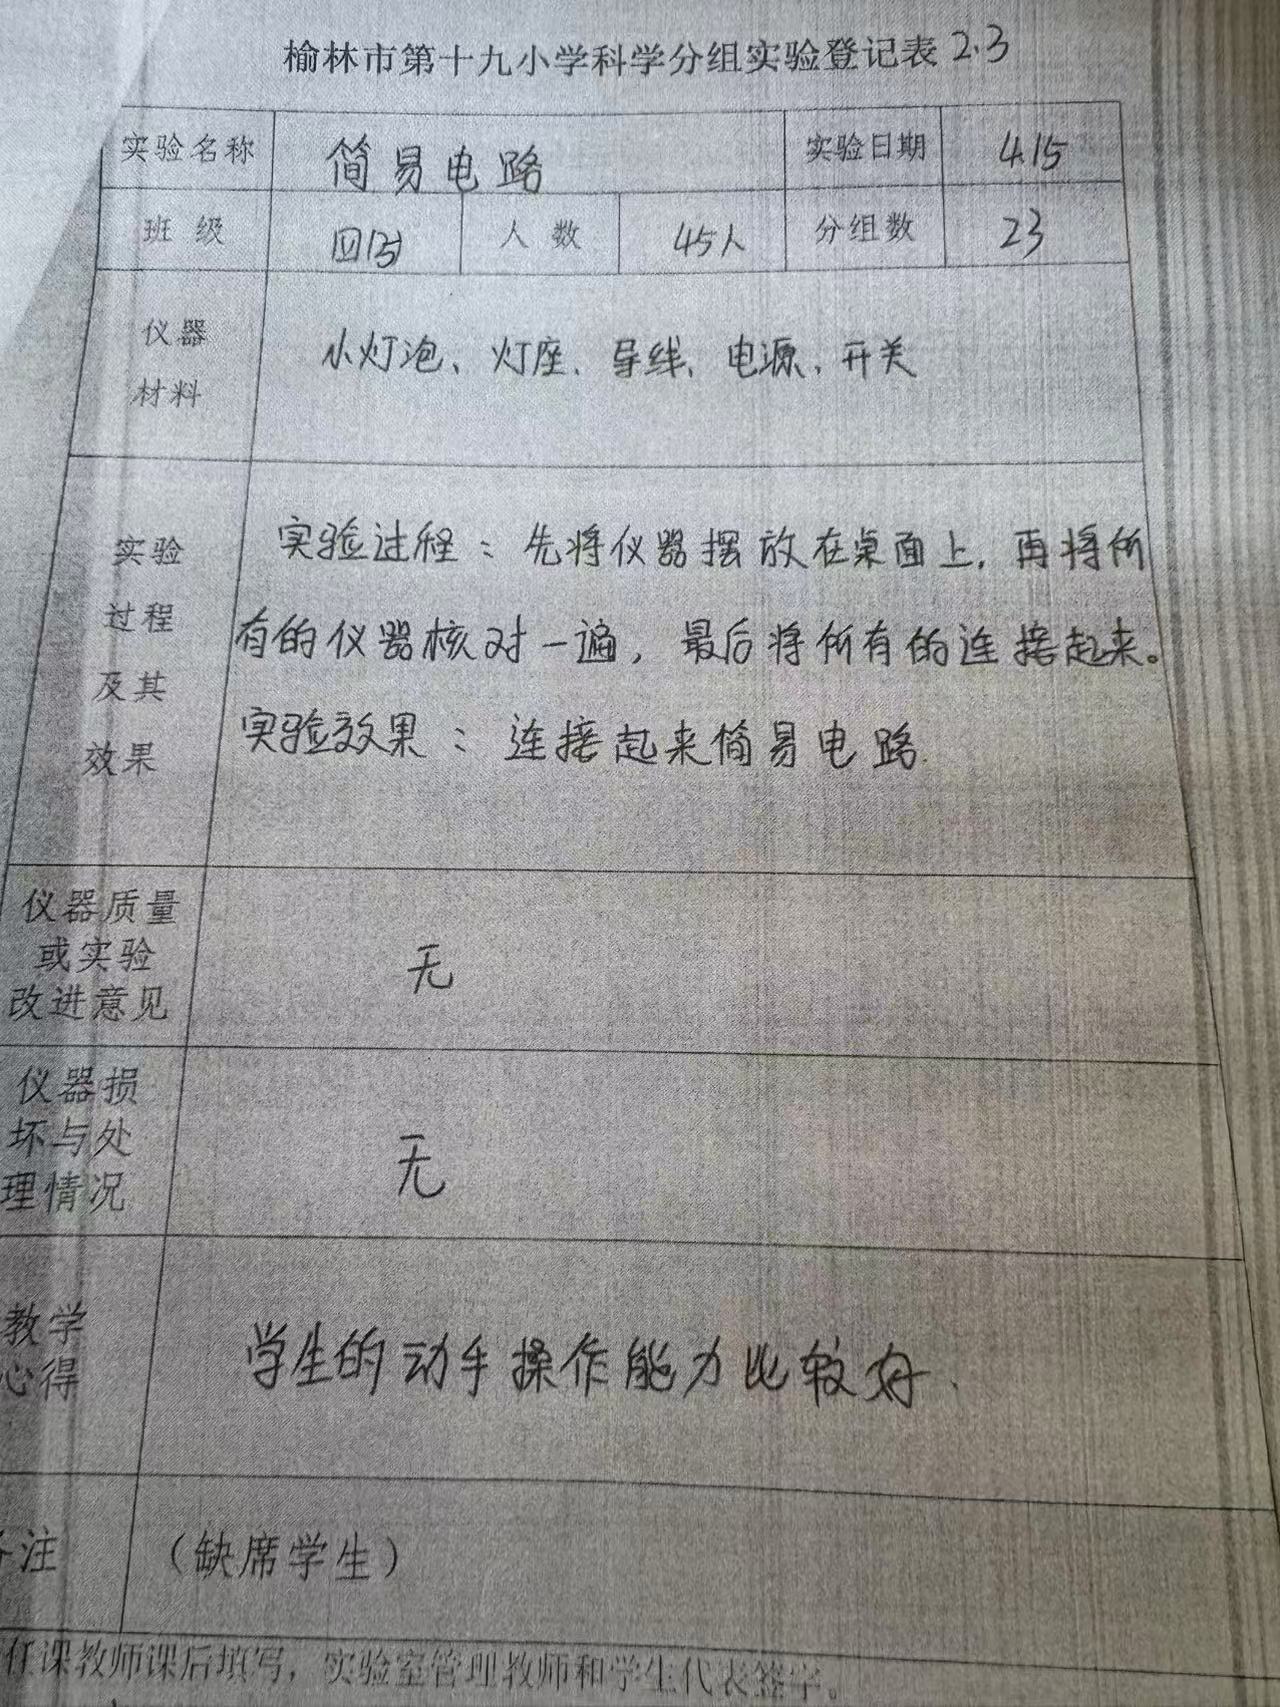 榆林市第十九小学科学分组实验登记表 2.3
实验名称 简易电路 实验日期 4.15
班 级 人 数 45人 分组数 23
仪器
材料
小灯泡、灯座、导线、电源、开关
实验
过程
及其
效果
实验过程：先将仪器摆放在桌面上，再将所
有的仪器核对一遍，最后将所有的连接起来。
实验效果：连接起来简易电路
仪器质量
或实验
改进意见
无
仪器损
坏与处
理情况
无
教学
心得
学生的动手操作能力比较好.
注 （缺席学生）
任课教师课后填写，实验室管理教师和学生代表签字。